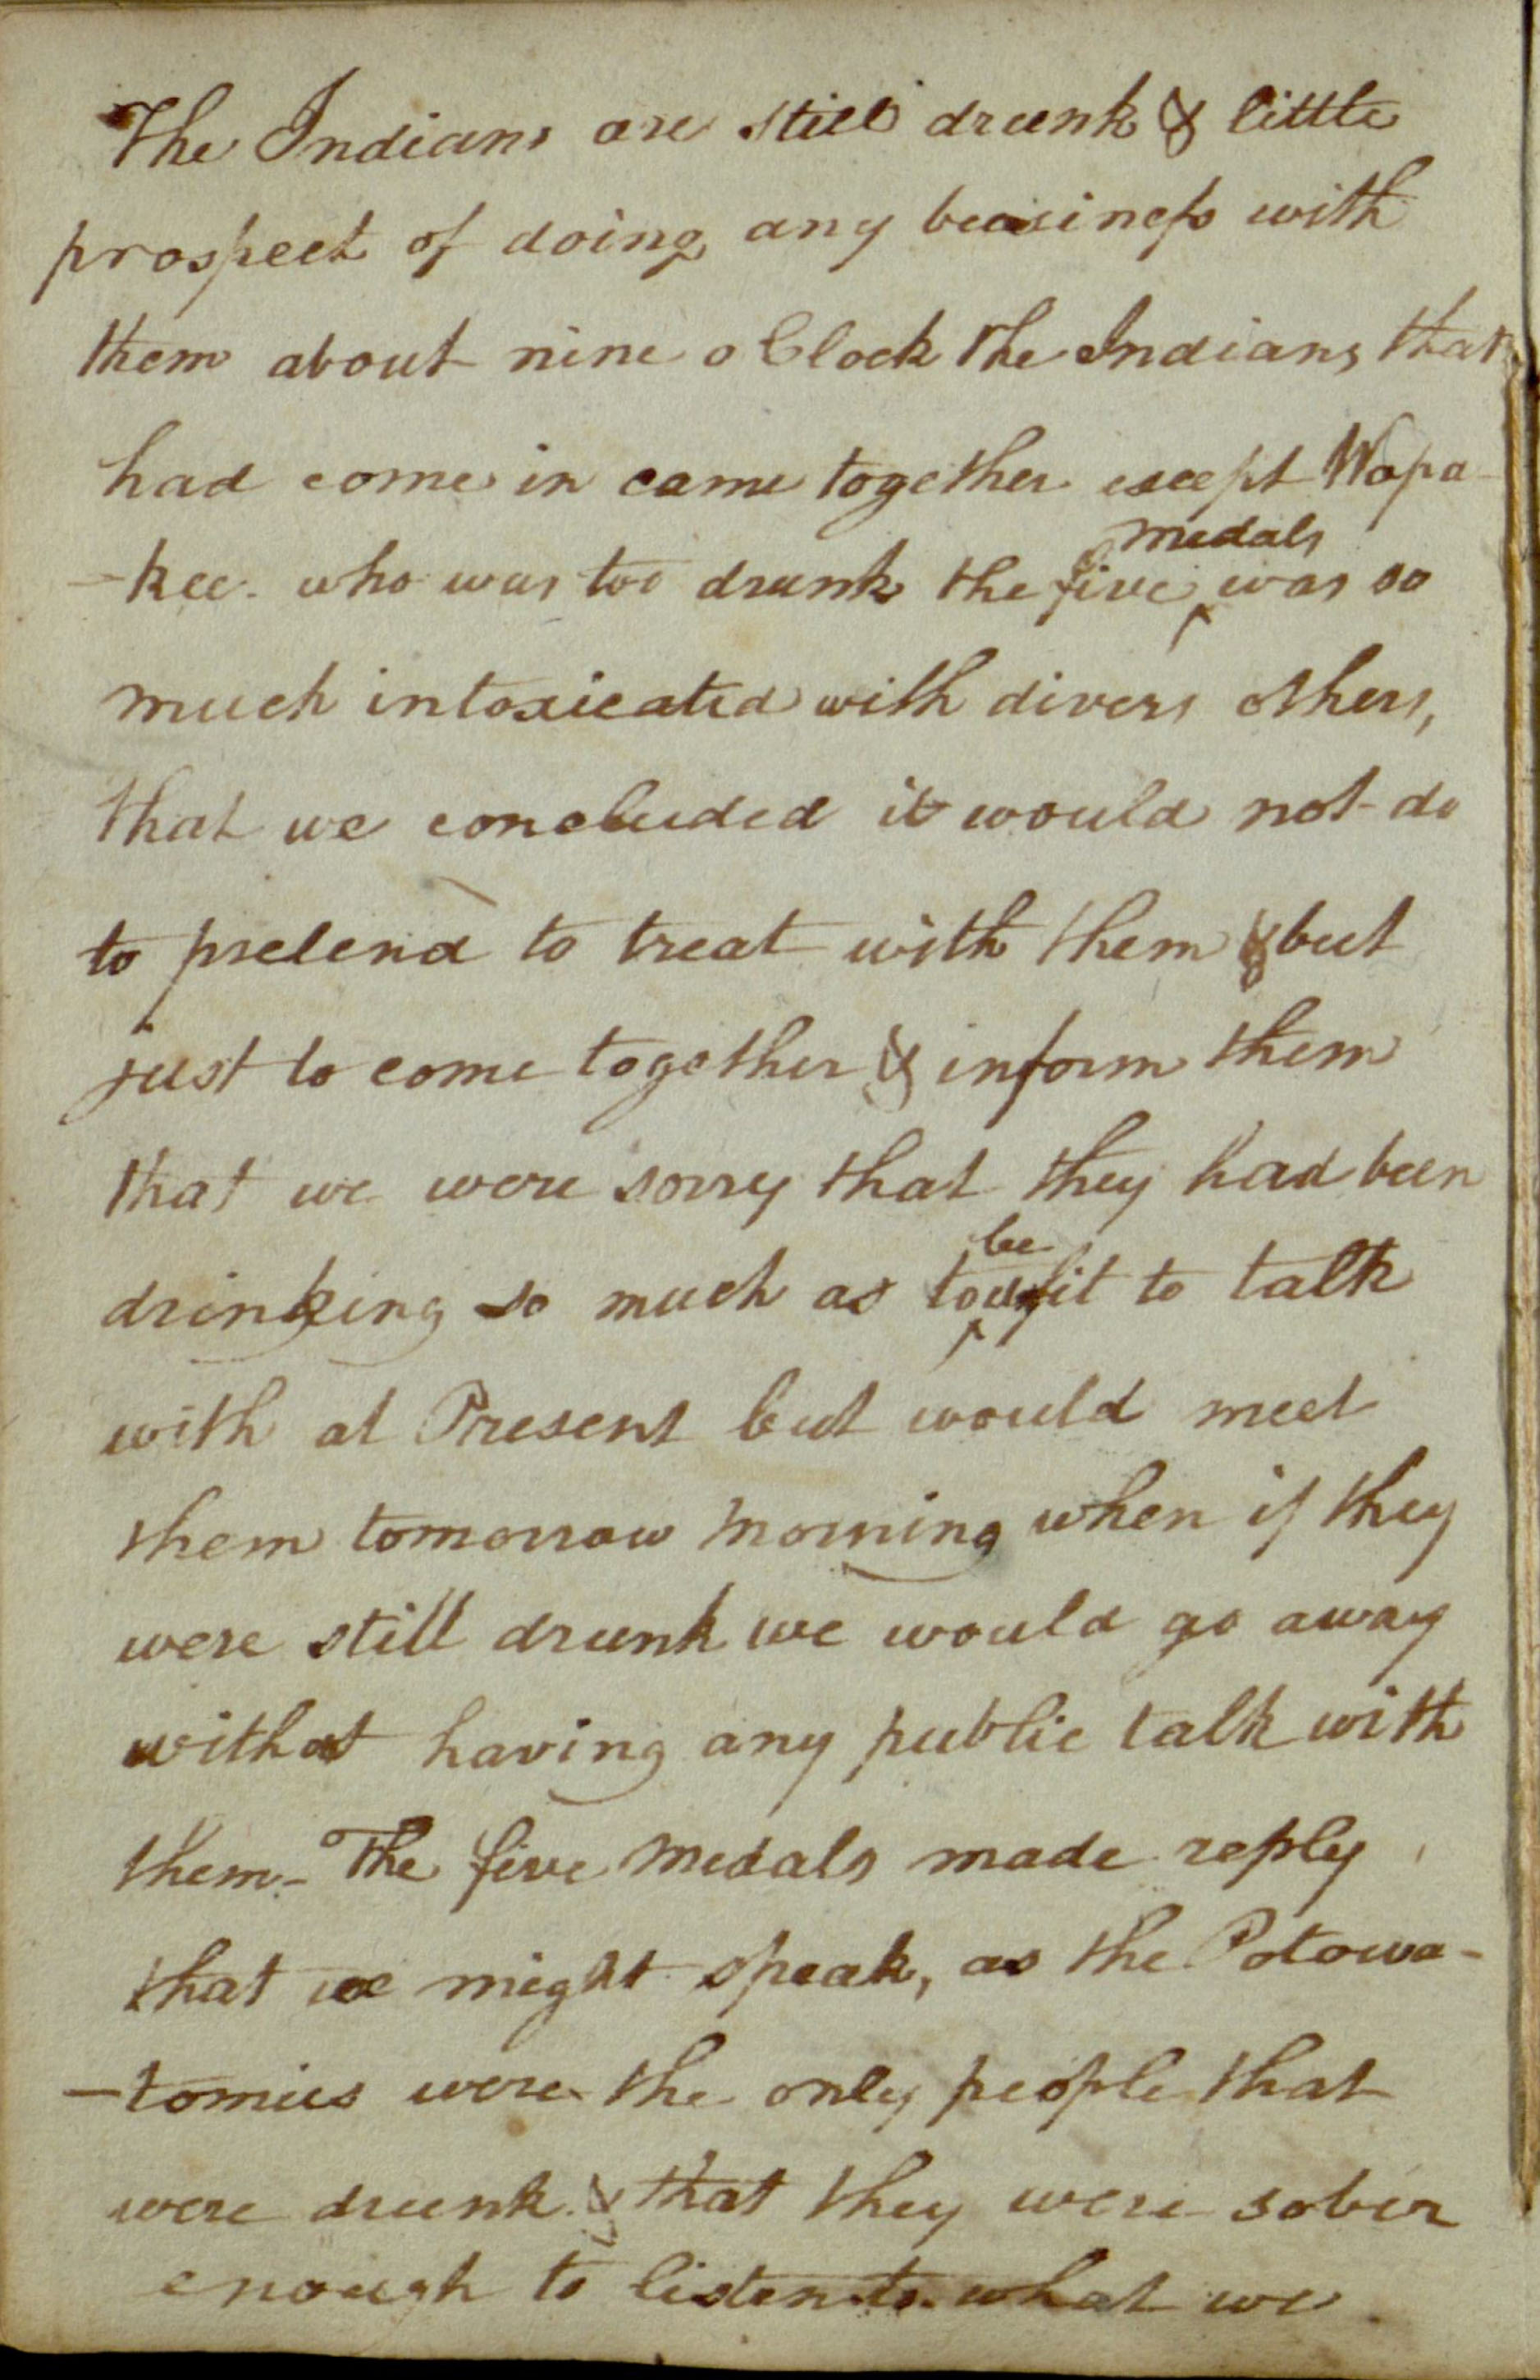 The Indians are still drunk & little
prospect of doing any business with
them about nine oClock the Indians that
had come in came together except Wapa-
-kee. who was too drunk the five medals was so
much intoxicated with divers others,
that we concluded it would not do
to pretend to treat with them & but
just to come together & inform them
that we were sorry that they had been
drinking so much as to be unfit to talk
with at Present but would meet
them tomorrow morning when if they
were still drunk we would go away
without having any public talk with
them - The five Medals made reply
that we might speak, as the Potowa-
-tomies were the only people that
were drunk & that they were sober
enough to listen to what we